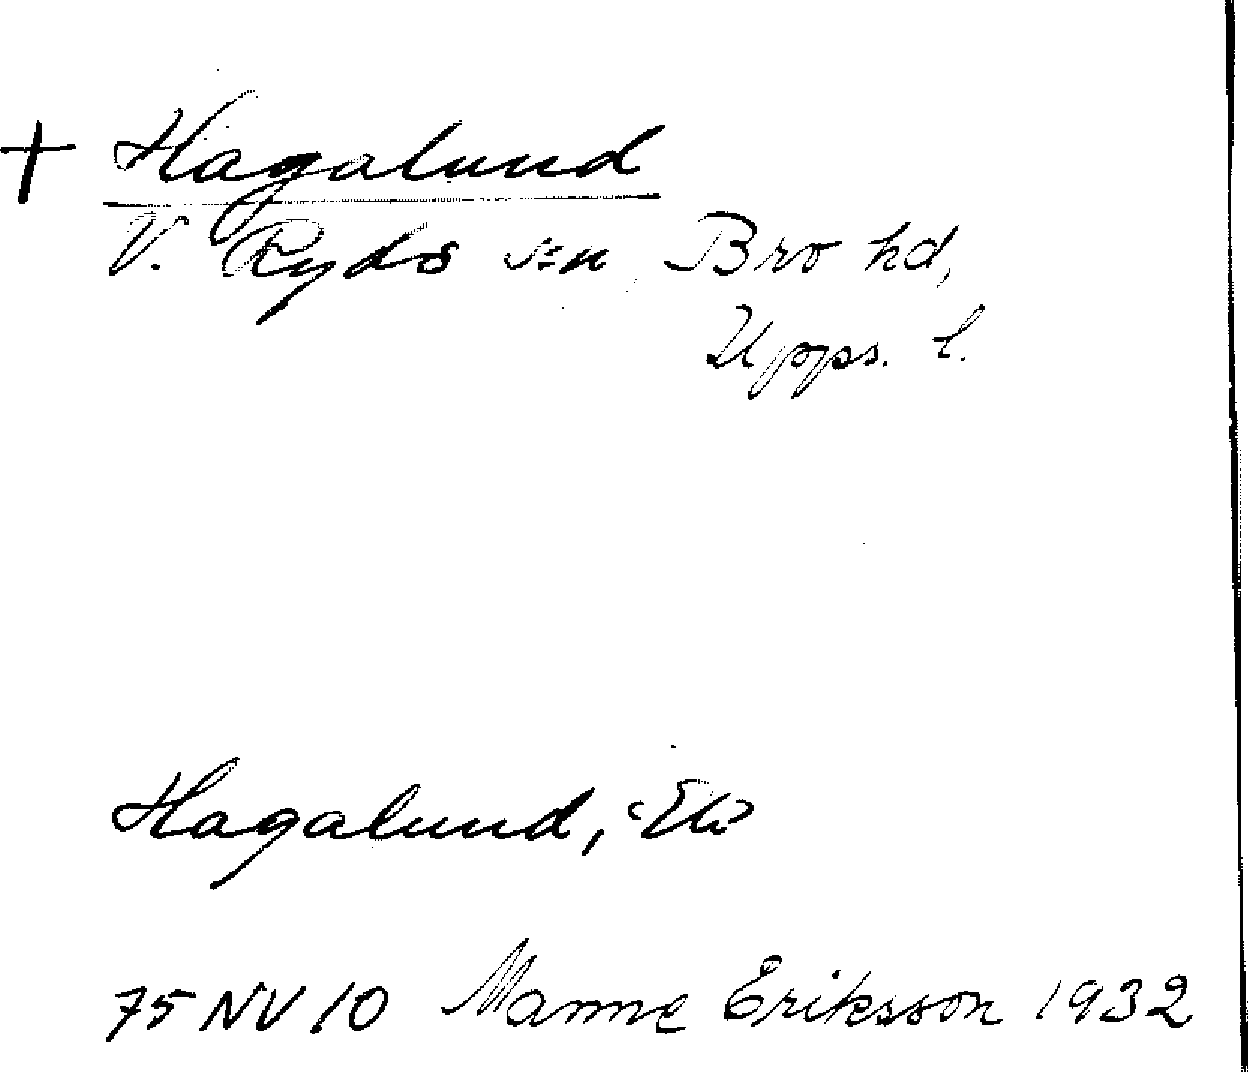 + Hagalund
V. Ryds sn, Bro hd,
Upps. l.
Hagalund, Ek
75 NV 10 Manne Eriksson 1932